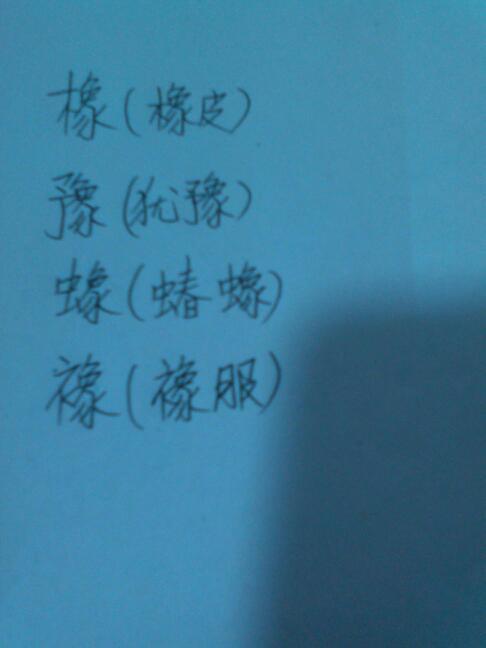 橡(橡皮)
豫(犹豫)
蟓(蝽蟓)
襐(襐服)